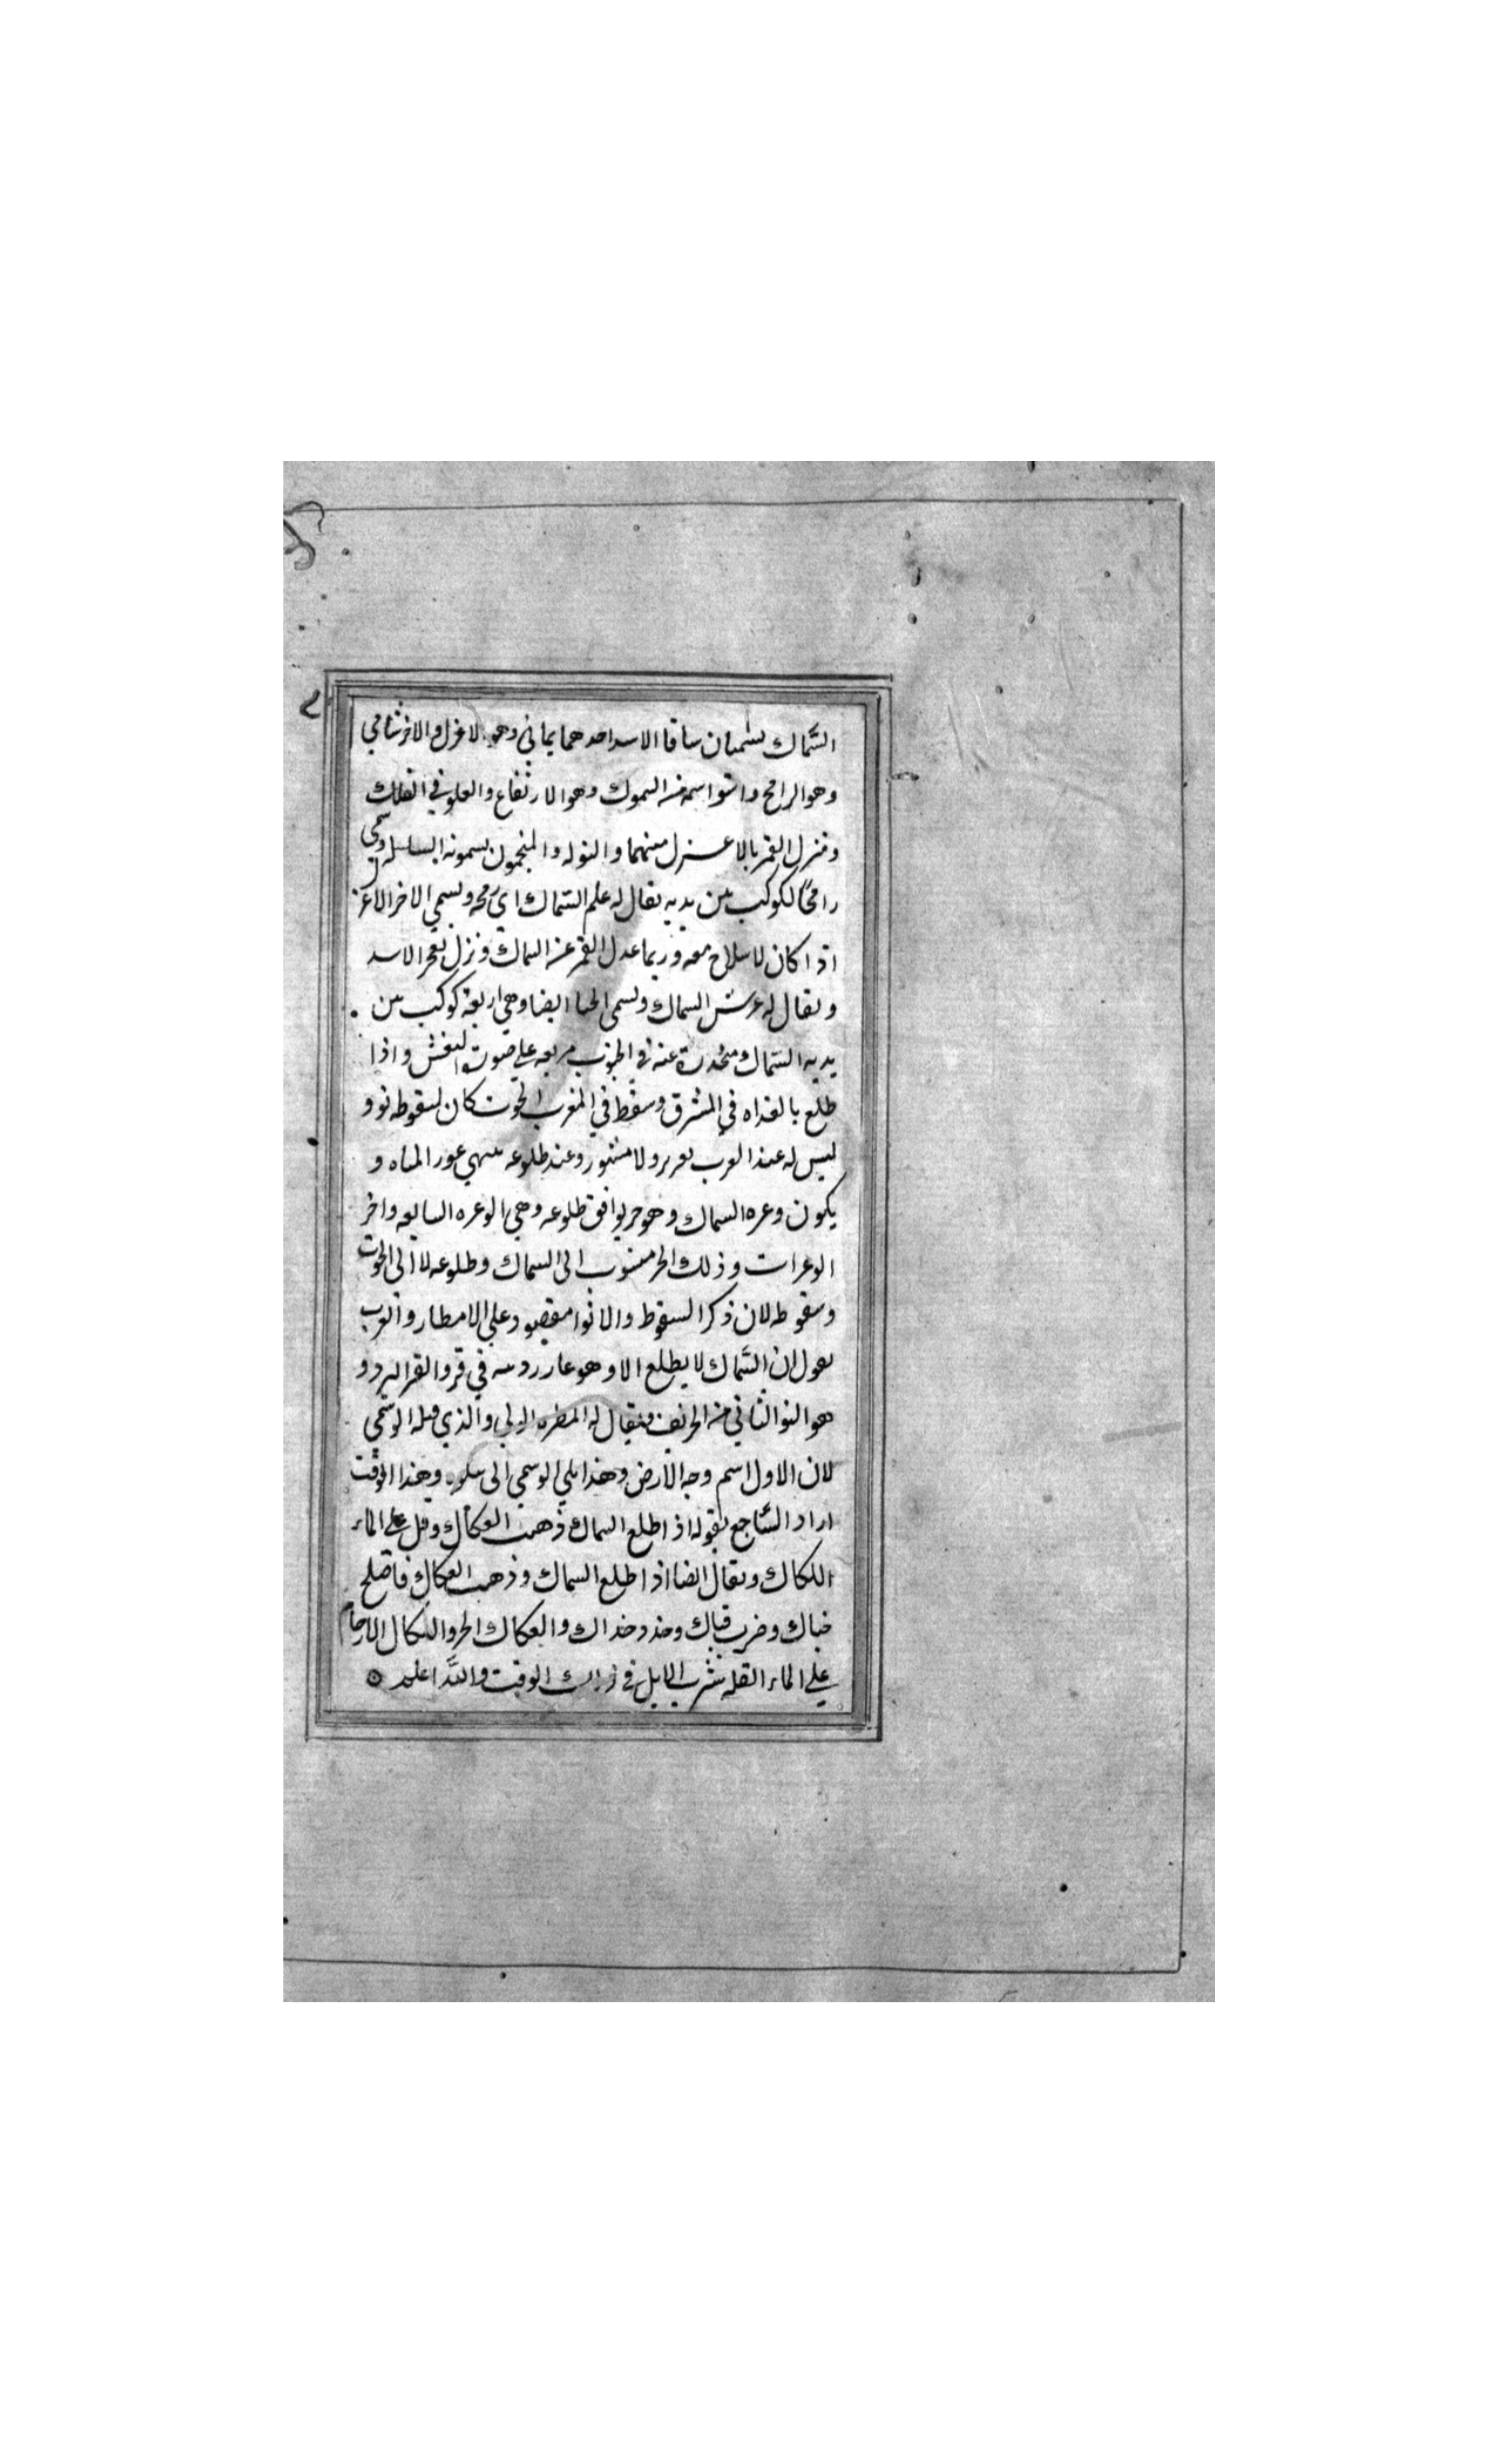 السَّماك يسميان ساقا الاسد احدهما يماني وهو الاعزل والاخر شامي
وهو الرامح واشتق اسمه من السموك وهو الارتفاع والعلو في الفلك
وينزل القمر بالاعـــزل منهما والنو له والمنجمون يسمونه السنبله وسمي
رامحًا لكوكب بين يديه يقال له علم السَّماك اي رمحه ويسمي الاخر الاعزل
اذ اكان لا سلاح معه وربما عدل القمر عن السماك ونزل بعجز الاسد
ويقال له عرش السماك ويسمى الخبا ايضا وهي اربعة كوكب بين
يديه السَّماك منحدرة عنه في الجنوب مربعه علي صوت النعش واذا
طلع بالغداه في المشرق وسقط في المغرب الحوت كان لسقوطه نو و
ليس له عند العرب وعند طلوعه ينتهي غور المياه و
يكون وغره السماك وهو حر يوافق طلوعه وهي الوغره السابعه واخر
الوغرات وذلك الحر منسوب الى السماك وطلوعه لا الى الحوت
وسقوطه لان ذكر السقوط والانوا مقصود علي الامطار والعرب
يقول ان السَّماك لا يطلع الا وهو في قر والقر البرد و
هو النو الثاني من الخريف ويقال له المطره الولي والذي قبله الوسمي
لان الاول اسم وجه الارض وهذا يلي الوسمي الى وهذا الوقت
اراد السَّاجع بقوله اذ اطلع السماك ذهب العكاك وقل علي الماء
اللكاك ويقال ايضا اذ اطلع السماك وذهب العكاك فاصلح
خباك وضرب قباك وخذ وحذ اك والعكاك الحر واللكال الازحام
علي الماء القله شرب الابل في ذلك الوقت والله اعلم